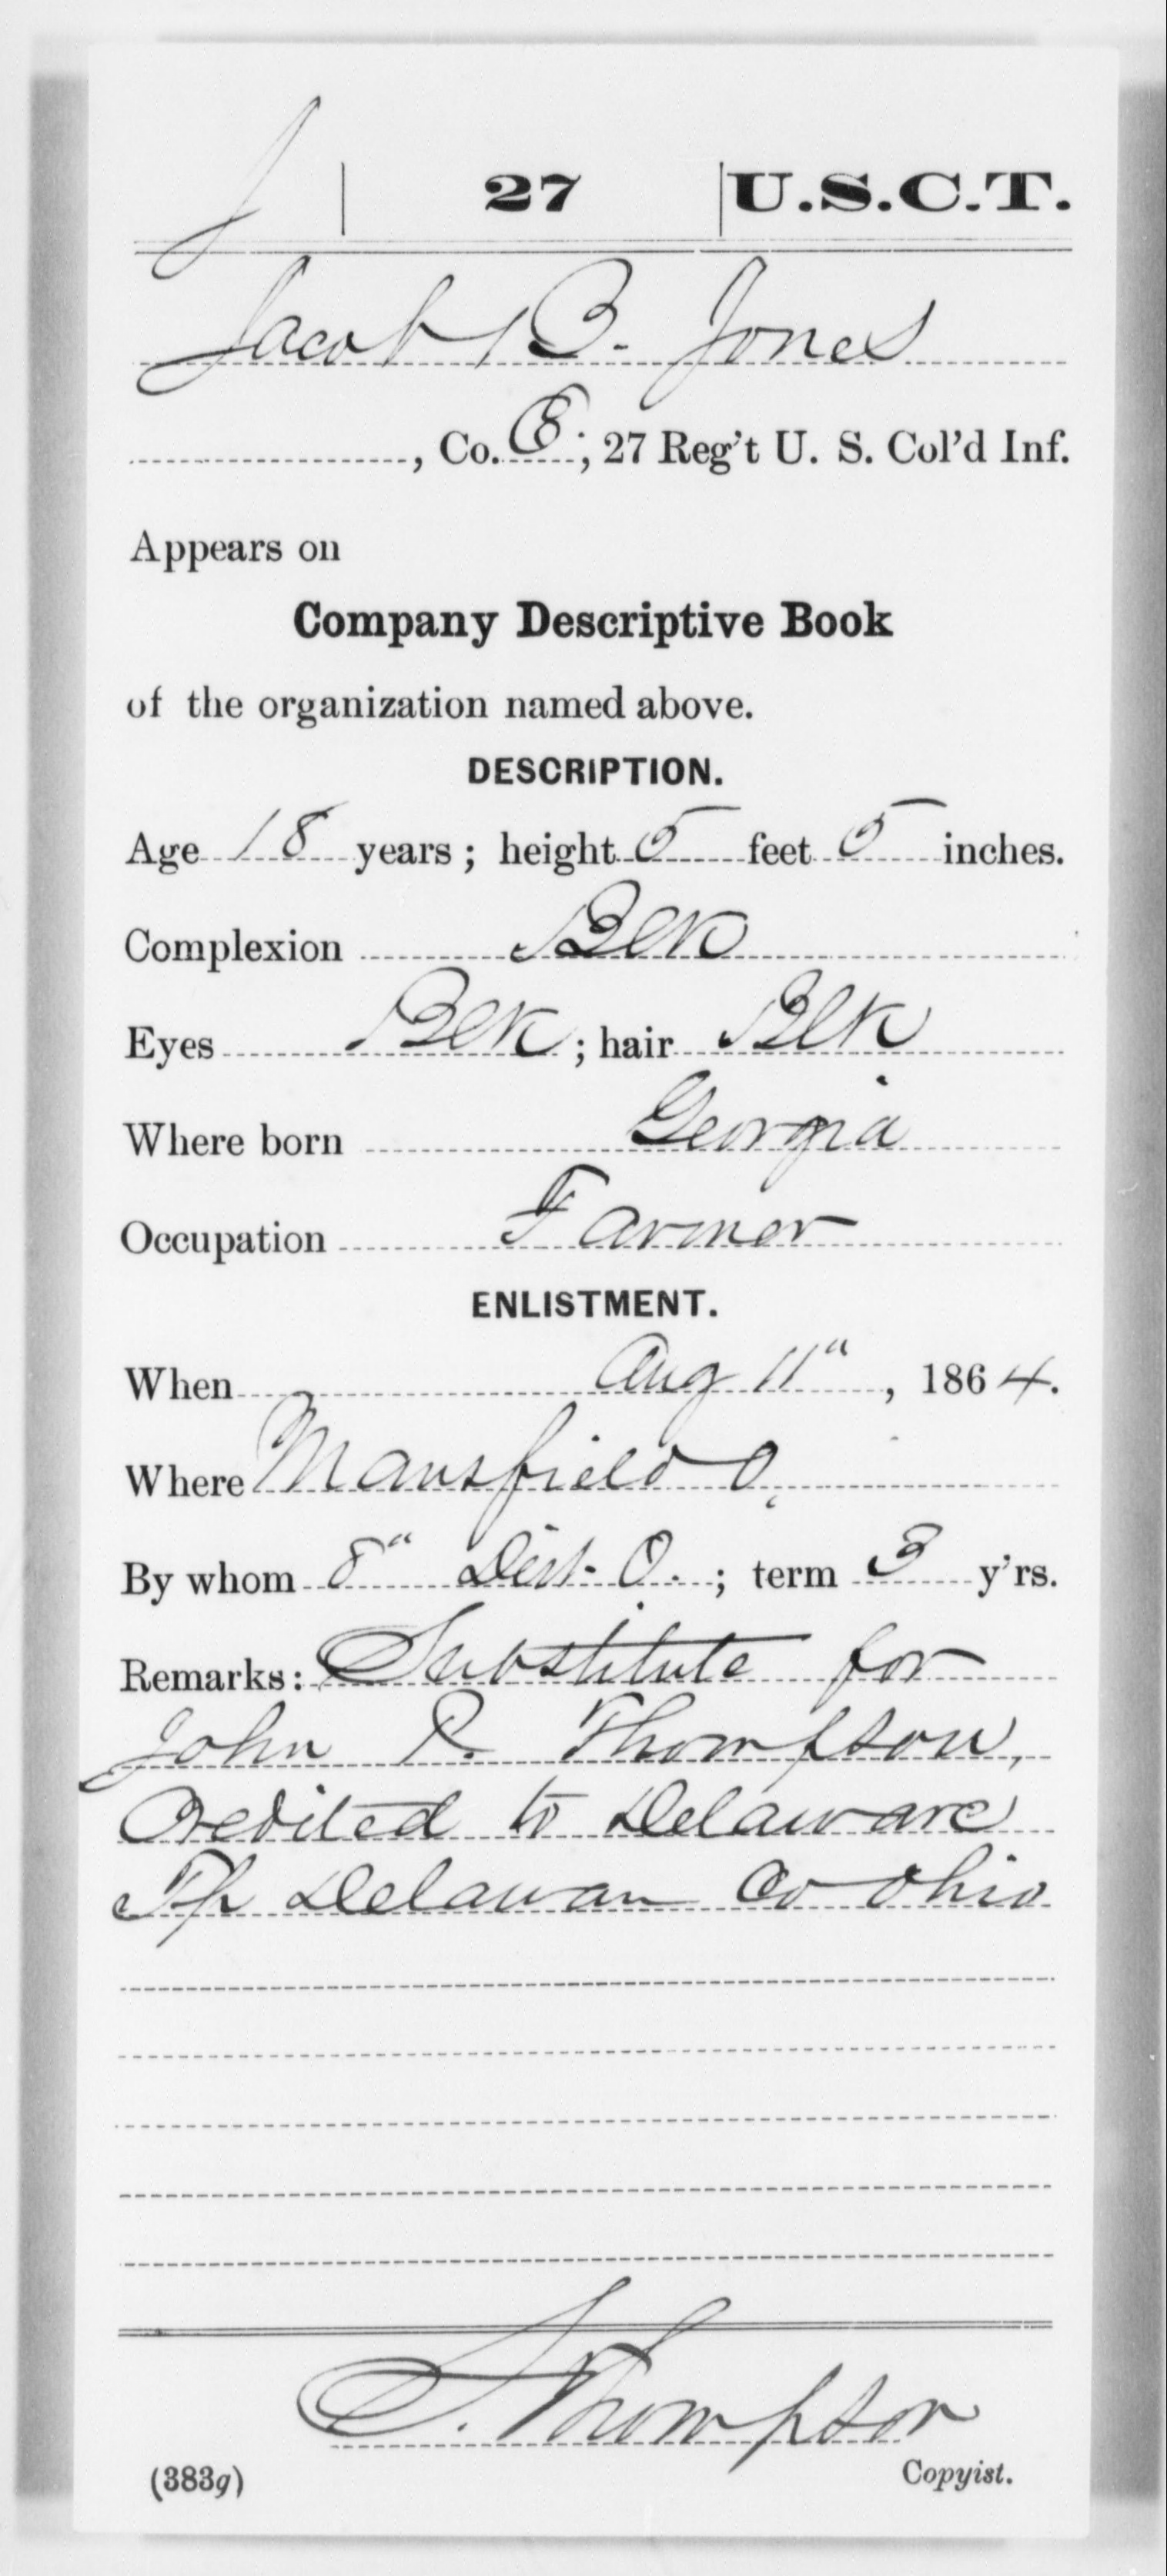 J | 27 | U.S.C.T.
Jacob B. Jones
, Co. E; 27 Reg't U. S. Col'd Inf.
Appears on
Company Descriptive Book
of the organization named above.
DESCRIPTION.
Age 18 years; height 5 feet 5 inches.
Complexion Blk
Eyes Blk; hair Blk
Where born Georgia
Occupation Farmer
ENLISTMENT.
When Aug 11", 1864.
Where Mansfield O.
By whom 8" Dist. O.; term 3 y'rs.
Remarks: Substitute for
John P. Thompson,
Credited to Delaware
Tp Delawan Co Ohio
S. Thompson
(383g) Copyist.